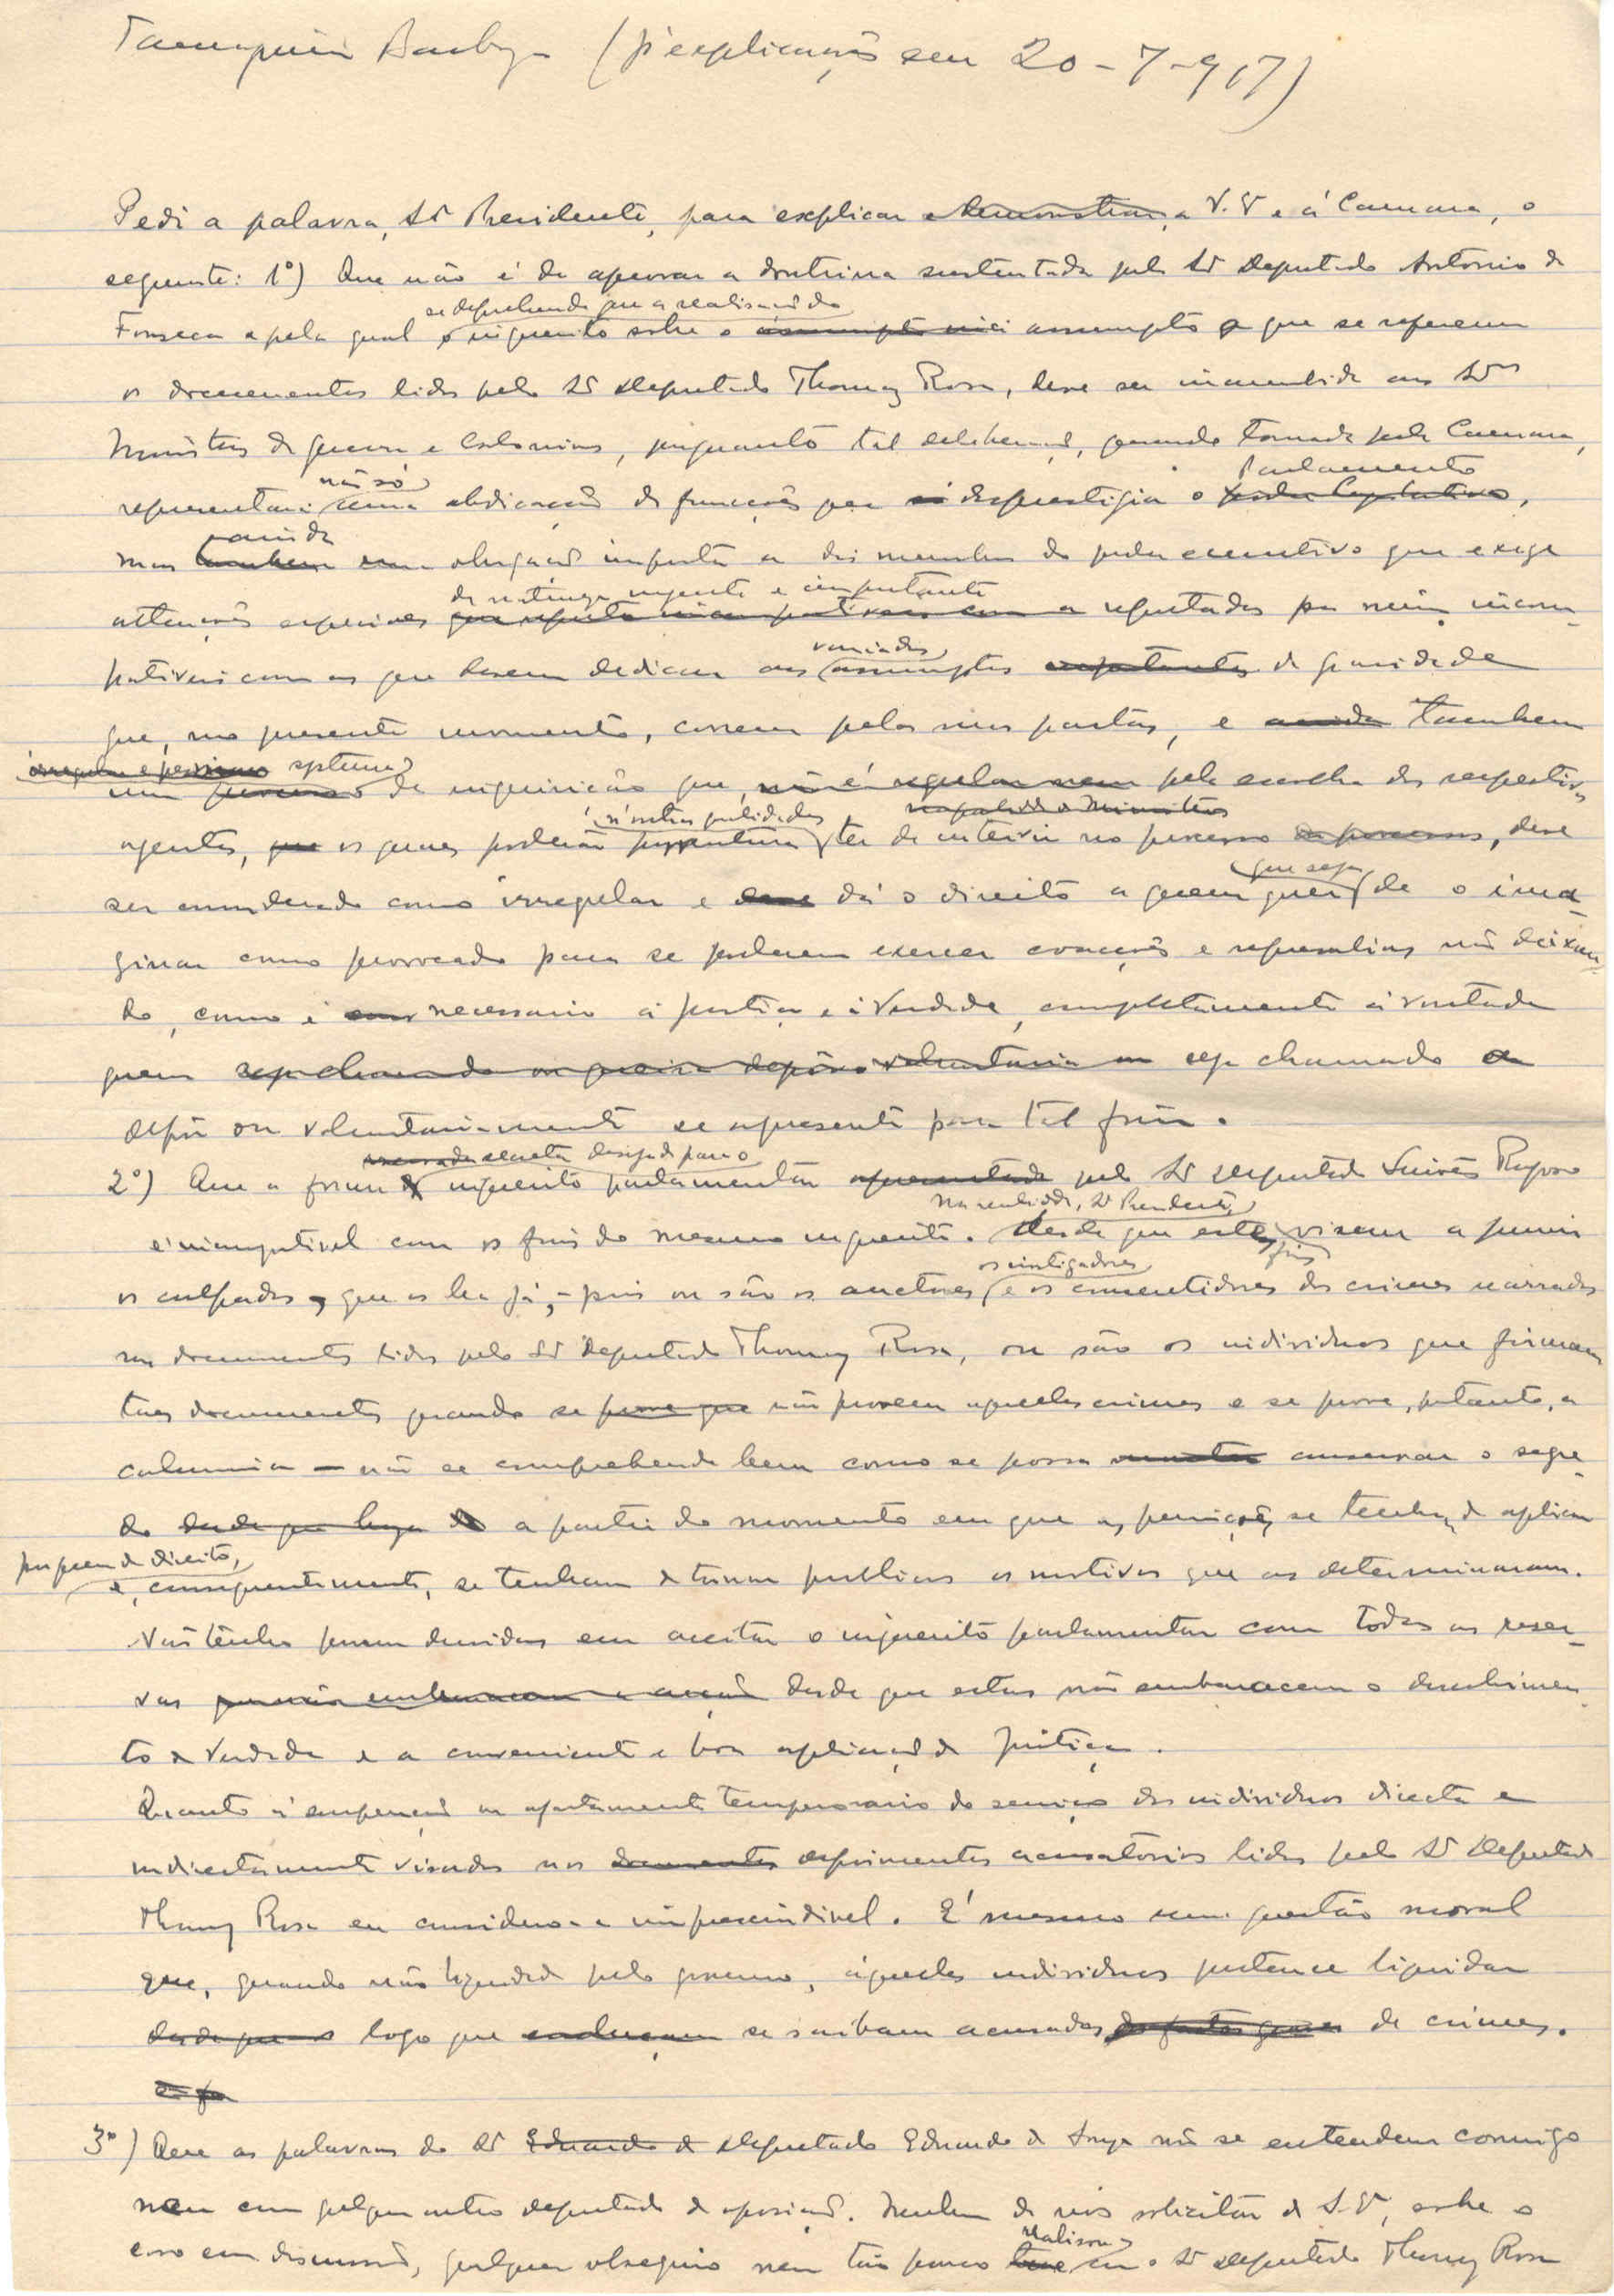 Tamagnini Barbosa (pª explicações em 20-7-917)
Pedi a palavra, Sr Presidente, para explicar e demonstrar, a V. Exª e á Camara, o
seguinte: 1º) Que não é de aprovar a doutrina sustentada pelo Sr Deputado Antonio da
se deprehende que a realisação do
Fonseca e pela qual o inquerito sobre o assumpto a que se referem
os documentos lidos pelo Sr Deputado Thomaz Rosa, deve ser incumbida aos Srs
Ministros da Guerra e Colonias, porquanto tal deliberação, quando tomada pela Camara,
não só Parlamento
representaria uma abdicação de funções que desprestigia o poder legislativo,
ainda
mas tambem uma obrigação imposta a dois membros do poder executivo que exige
de natureza urgente e importante
attenções especiaes a reputadas por mim incom-
variados
pativeis com as que devem dedicar aos assumptos importantes de gravidade
que, no presente momento, correm pelas suas pastas, e ainda tambem
systema
um processo de inquirição que, não é regular nem pela escolha dos respectivos
n'outras qualidades na qualidade de Ministros
agentes, que os quaes poderão porventura ter de intervir no processo, deve
que seja
ser considerado como irregular e dá o direito a quem quer de o ima-
ginar como provocado para se poderem exercer coacções e represalias não deixan-
do, como é necessario á justiça e á Verdade, completamente á vontade
quem seja chamado ou queira depôr voluntaria ou seja chamado a
depôr ou voluntariamente se apresente para tal fim.
secreta desejada para o
2º) Que a forma inquerito parlamentar apresentada pelo Sr Deputado Simões Raposo
Na realidade, Sr Presidente,
é incompativel com os fins do mesmo inquerito. Desde que estes fins visam a punir
os instigadores
os culpados, que os ha já, - pois ou são os auctores e os consentidores dos crimes narrados
nos documentos lidos pelo Sr Deputado Thomaz Rosa, ou são os individuos que firmam
taes documentos quando se prove que não provem aquelles crimes e se prove, portanto, a
calumnia - não se comprehende bem como se possa conservar o segre-
do desde que haja a partir do momento em que as punições se tenham de aplicar
de direito,
e, consequentemente, se tenham de tornar publicos os motivos que as determinaram.
Não tenho porem duvidas em aceitar o inquerito parlamentar com todas as reser-
vas desde que estas não embaracem o descobrimen-
to da Verdade e a conveniente e boa aplicação da Justiça.
Quanto á suspensão ou afastamento temporario do serviço dos individuos directa e
indirectamente visados nos documentos depoimentos acusatorios lidos pelo Sr Deputado
Thomaz Rosa eu considero-a imprescindivel. E' mesmo uma questão moral
que, quando não liquidada pelo governo, áquelles individuos pertence liquidar
desde que logo que se saibam acusados de crimes.
3º) Que as palavras do Sr Eduardo de Deputado Eduardo de Sousa não se entendem comigo
nem com qualquer outro deputado da oposição. Nenhum de nós solicitou de S. Exª, sobre o
realisou
caso em discussão, qualquer obsequio nem tão pouco teve com o Sr Deputado Thomaz Rosa